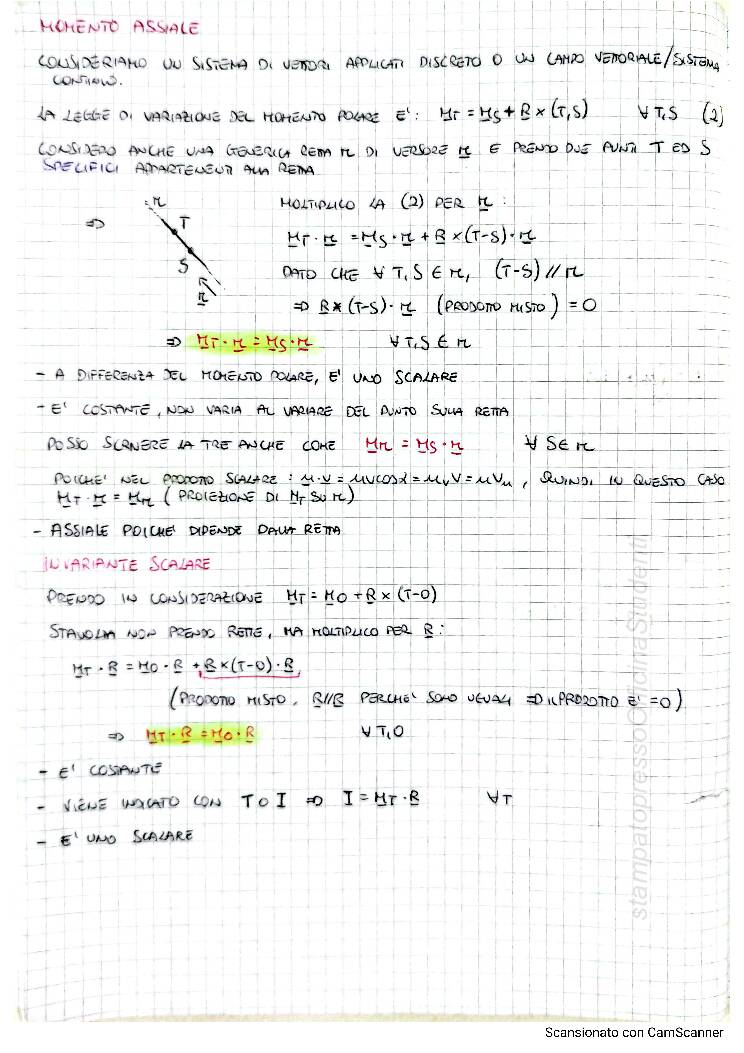 MOMENTO ASSIALE
CONSIDERIAMO UN SISTEMA DI VETTORI APPLICATI DISCRETO O UN CAMPO VETTORIALE/SISTEMA
CONTINUO.
LA LEGGE DI VARIAZIONE DEL MOMENTO POLARE E': M̲T = M̲S + R̲ × (T,S) ∀T,S (2)
CONSIDERO ANCHE UNA GENERICA RETTA r DI VERSORE r̲ E PRENDO DUE PUNTI T ED S
SPECIFICI APPARTENENTI ALLA RETTA
r
MOLTIPLICO LA (2) PER r̲ :
⇒ T
M̲T · r̲ = M̲S · r̲ + R̲ × (T-S) · r̲
S
DATO CHE ∀ T,S ∈ r, (T-S) // r
r̲
⇒ R̲ × (T-S) · r̲ (PRODOTTO MISTO) = 0
⇒ M̲T · r̲ = M̲S · r̲ ∀T,S ∈ r
- A DIFFERENZA DEL MOMENTO POLARE, E' UNO SCALARE
- E' COSTANTE, NON VARIA AL VARIARE DEL PUNTO SULLA RETTA
POSSO SCRIVERE LA TRE ANCHE COME M̲r = M̲S · r̲ ∀ S∈ r
POICHE' NEL PRODOTTO SCALARE : u̲ · v̲ = uv cosα = uᵥv = uvᵤ , QUINDI IN QUESTO CASO
M̲T · r̲ = Mr (PROIEZIONE DI M̲T SU r)
- ASSIALE POICHE' DIPENDE DALLA RETTA
INVARIANTE SCALARE
PRENDO IN CONSIDERAZIONE M̲T = M̲O + R̲ × (T-O)
STAVOLTA NON PRENDO RETTE, MA MOLTIPLICO PER R̲ :
M̲T · R̲ = M̲O · R̲ + R̲ × (T-O) · R̲
(PRODOTTO MISTO, R̲//R̲ PERCHE' SONO UGUALI ⇒ IL PRODOTTO E' = 0)
⇒ M̲T · R̲ = M̲O · R̲ ∀T,O
- E' COSTANTE
- VIENE INDICATO CON T O I ⇒ I = M̲T · R̲ ∀T
- E' UNO SCALARE
stampatopressoOfficinaStudenti
Scansionato con CamScanner